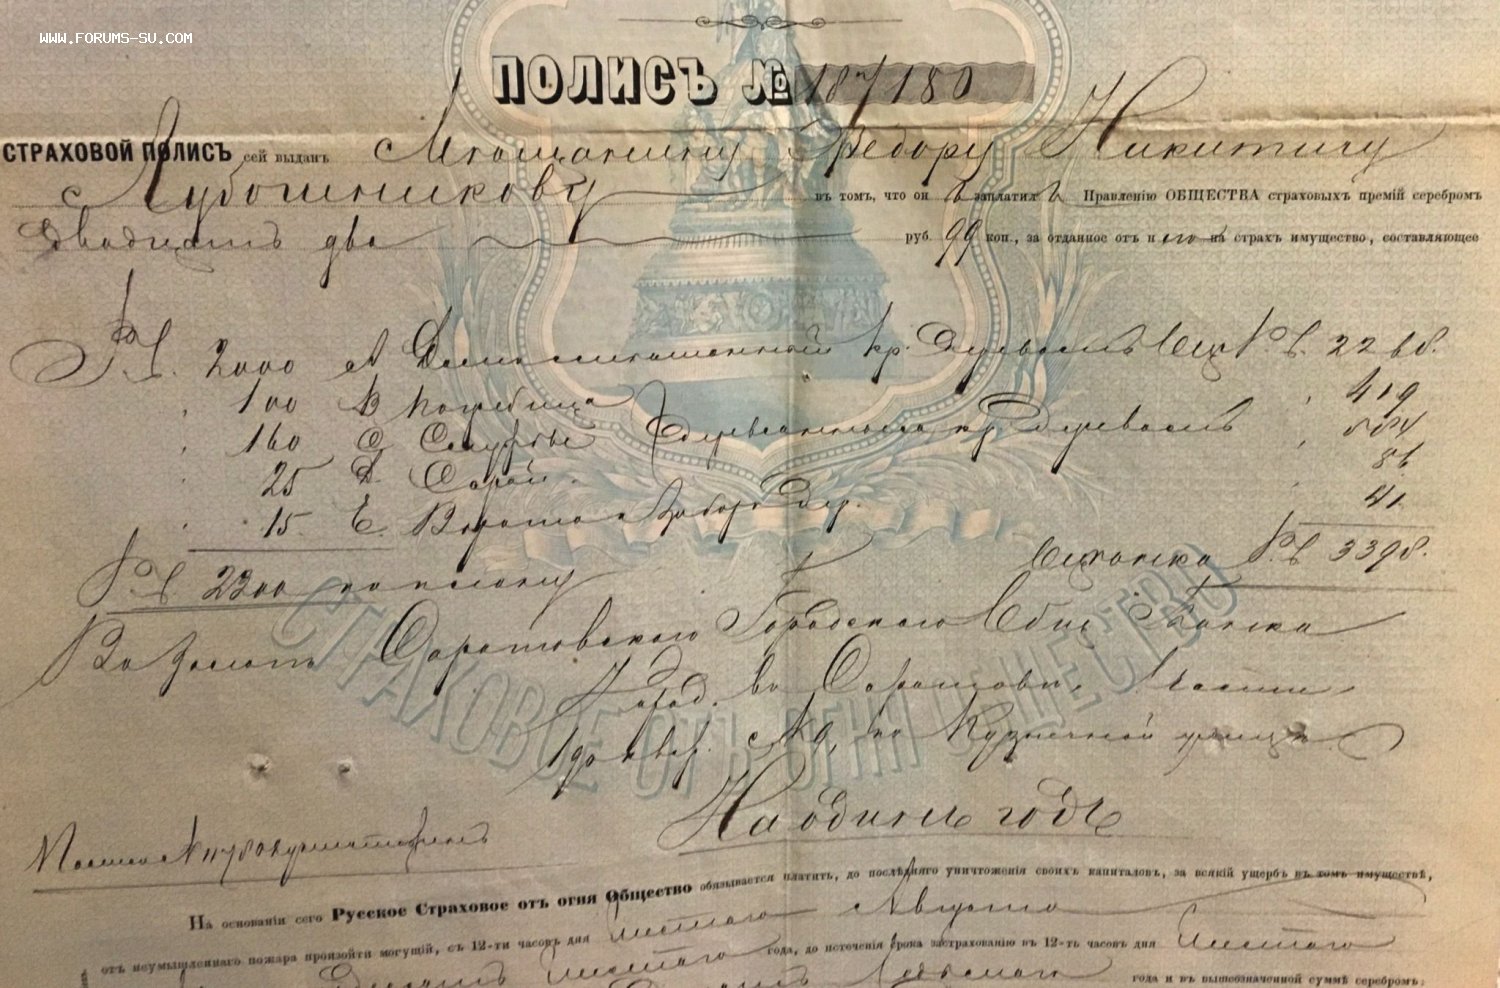 WWW.FORUMS-SU.COM
ПОЛИСЪ № 187180
СТРАХОВОЙ ПОЛИСЪ сей выданъ Мѣщанину Ѳедору Никитичу
Лубошникову въ томъ, что онъ заплатилъ Правленію ОБЩЕСТВА страховыхъ премій серебромъ
двадцать два руб. 99 коп., за отданное отъ него на страхъ имущество, составляющее
Р.с. 2000 А Домъ смѣшанный кр. деревомъ Р.с.
100 В погребица 419
160 С деревянныя кр. деревомъ
25 D Сарай 86
15 E Ворота и заборъ дер. 41
Р.с. 2300 по плану Оцѣнка Р.с. 3398.
Въ залогѣ Саратовскаго Городского Общ. Банка
въ Саратовѣ, части
по Кузнечной улицѣ
На одинъ годъ
Полисъ №
На основаніи сего Русское Страховое отъ огня Общество обязывается платить, до послѣдняго уничтоженія своихъ капиталовъ, за всякій ущербъ въ томъ имуществѣ,
отъ неумышленнаго пожара произойти могущій, съ 12-ти часовъ дня шестаго Августа
года, до истеченія срока застрахованію въ 12-ть часовъ дня шестаго
шестаго года и въ вышеозначенной суммѣ серебромъ;
СТРАХОВОЕ ОТЪ ОГНЯ ОБЩЕСТВО